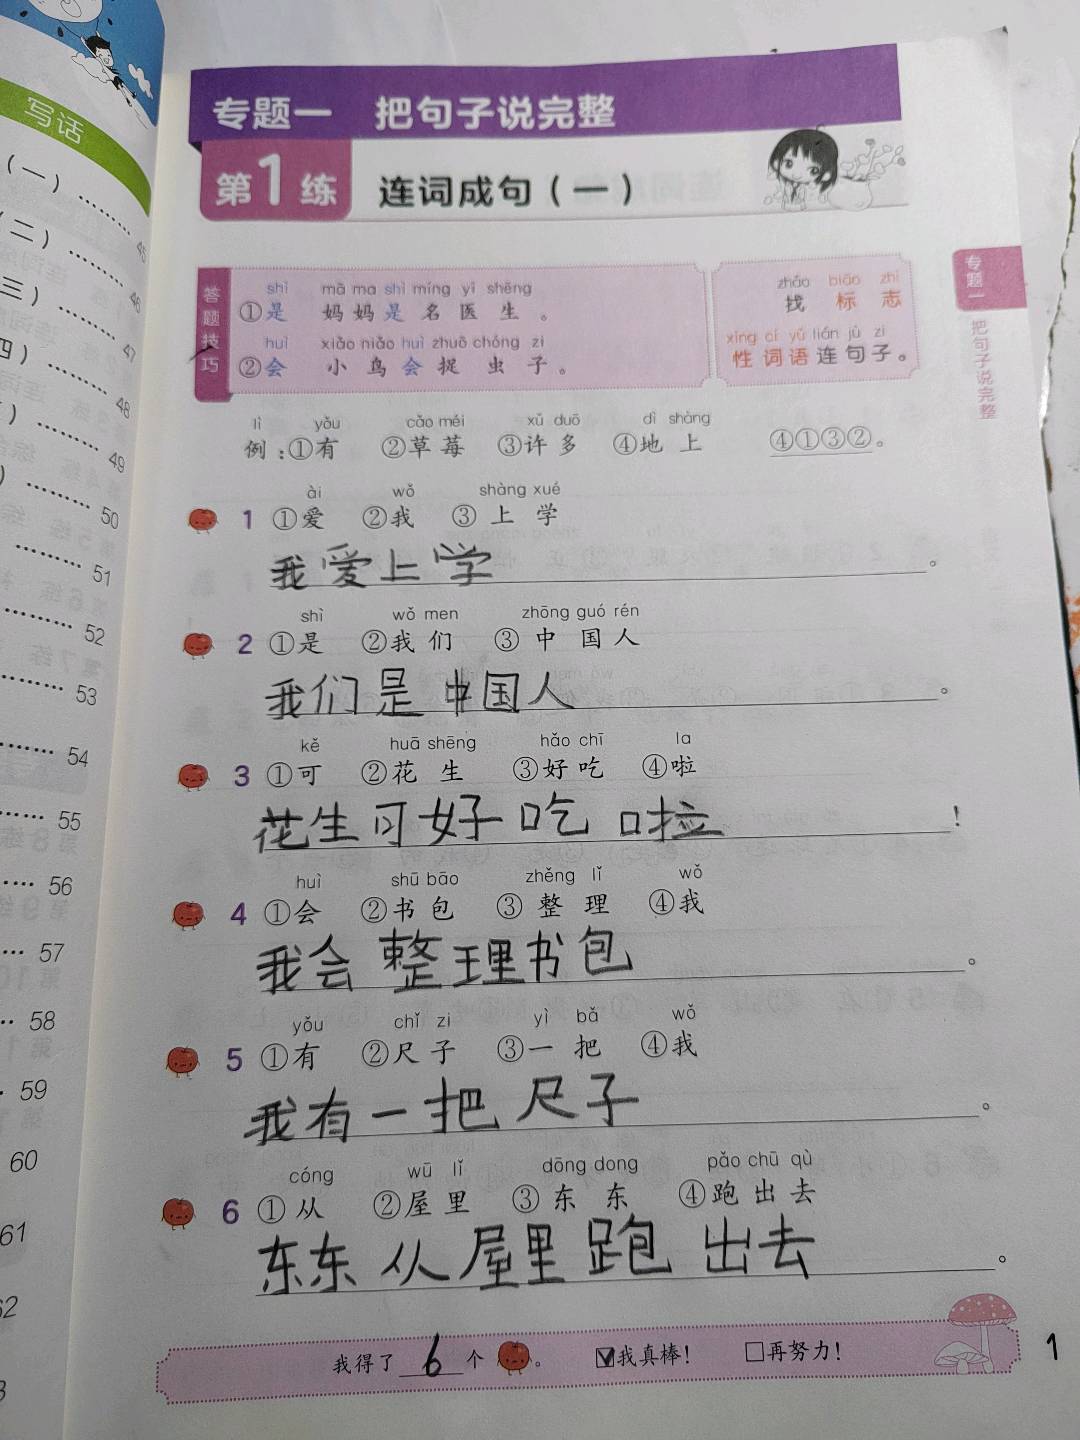 写话
(一) ········· 45
(二) ········· 46
三) ········· 47
四) ········· 48
) ········· 49
) ········· 50
········· 51
········· 52
········· 53
········· 54
······ 55
···· 56
··· 57
·· 58
· 59
60
61
62
3
专题一 把句子说完整
第1练 连词成句(一)
答题技巧
shì mā ma shì míng yī shēng
①是 妈妈是名医生。
huì xiǎo niǎo huì zhuō chóng zi
②会 小鸟会捉虫子。
zhǎo biāo zhì
找标志
xìng cí yǔ lián jù zi
性词语连句子。
专题一 把句子说完整
lì yǒu cǎo méi xǔ duō dì shàng
例:①有 ②草莓 ③许多 ④地上 ④①③②。
ài wǒ shàng xué
1 ①爱 ②我 ③上学
我爱上学。
shì wǒ men zhōng guó rén
2 ①是 ②我们 ③中国人
我们是中国人。
kě huā shēng hǎo chī la
3 ①可 ②花生 ③好吃 ④啦
花生可好吃啦!
huì shū bāo zhěng lǐ wǒ
4 ①会 ②书包 ③整理 ④我
我会整理书包。
yǒu chǐ zi yì bǎ wǒ
5 ①有 ②尺子 ③一把 ④我
我有一把尺子。
cóng wū lǐ dōng dong pǎo chū qù
6 ①从 ②屋里 ③东东 ④跑出去
东东从屋里跑出去。
我得了 6 个。 ☑我真棒! □再努力!
1